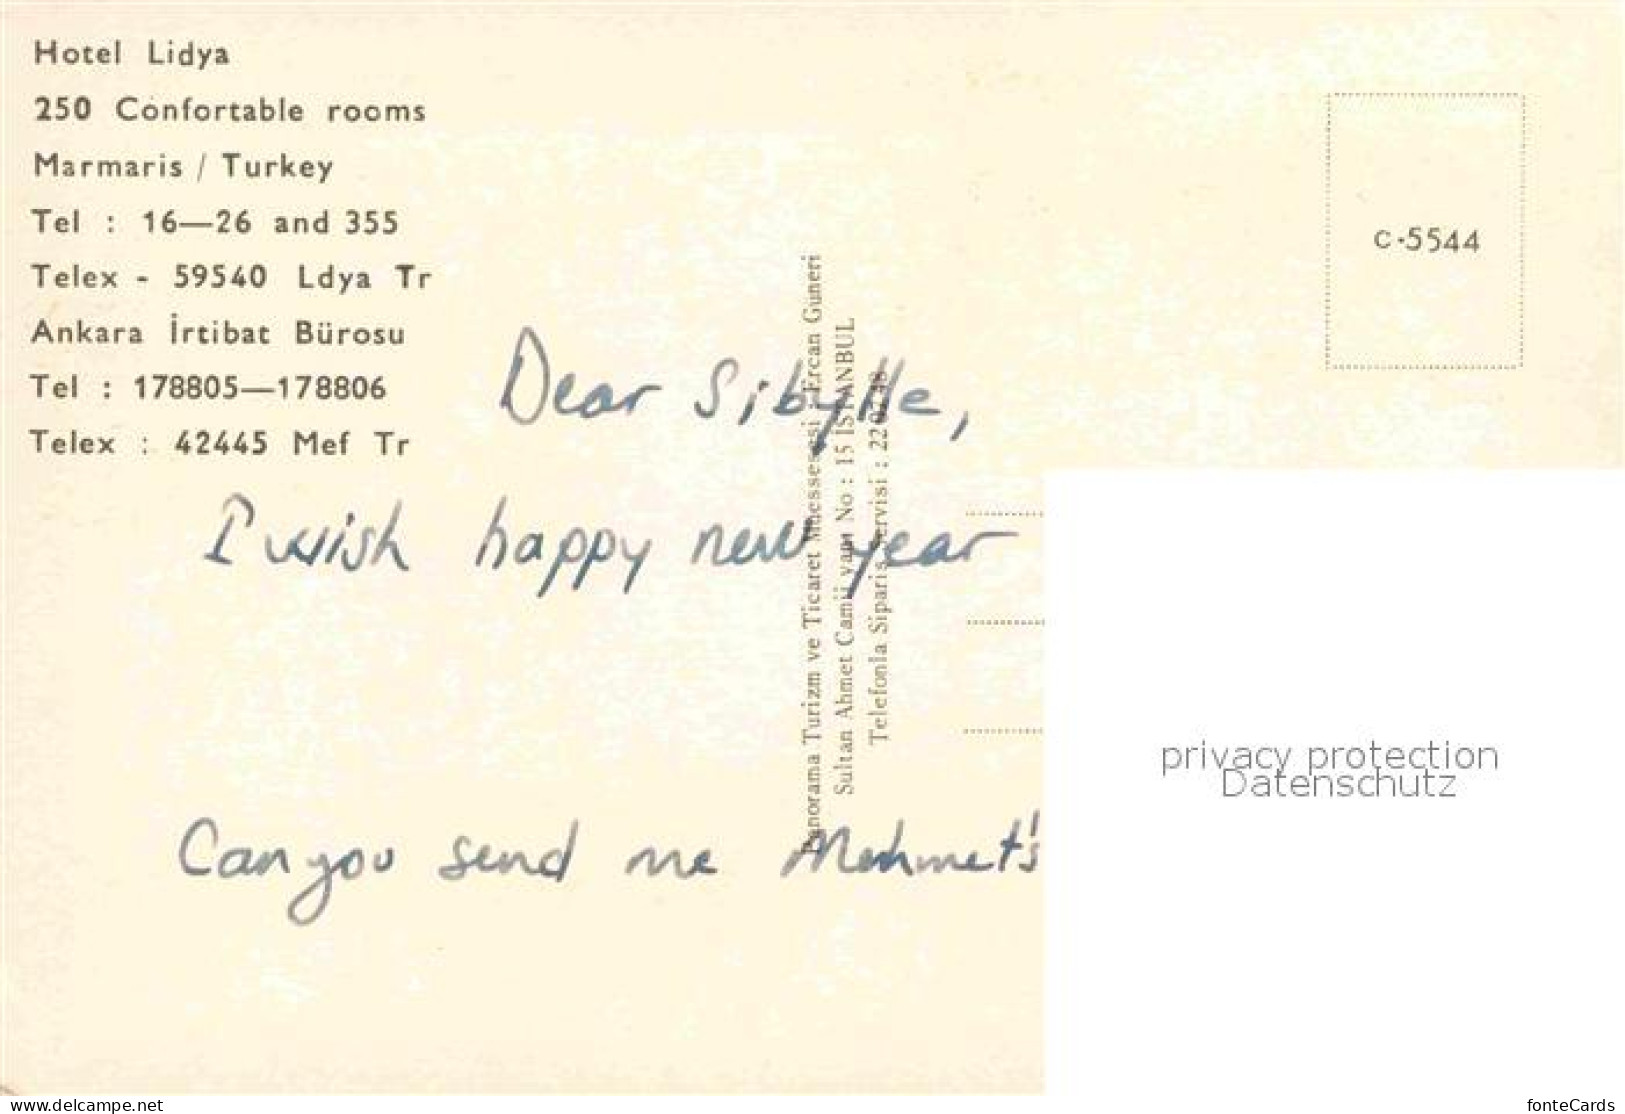 Hotel Lidya
250 Confortable rooms
Marmaris / Turkey
Tel : 16—26 and 355
Telex - 59540 Ldya Tr
Ankara İrtibat Bürosu
Tel : 178805—178806
Telex : 42445 Mef Tr
C·5544
Dear Sibylle,
I wish happy new year
Can you send me Mehmet's
Panorama Turizm ve Ticaret Ercan Guneri
Sultan Ahmet Camii yanı No : 15 İSTANBUL
Telefonla Sipariş Servisi :
privacy protection
Datenschutz
www.delcampe.net
fonteCards